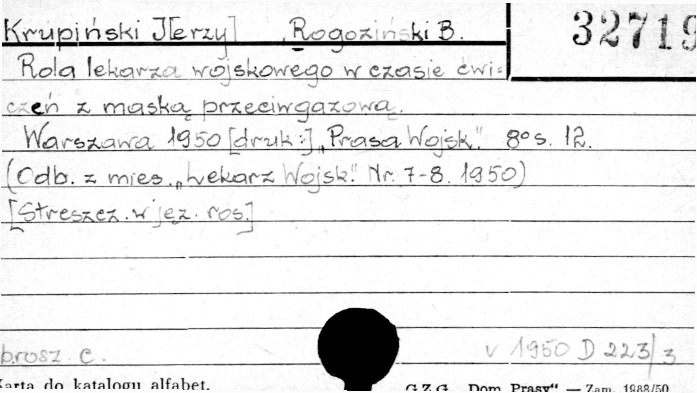 Krupiński J[erzy] , Rogoziński B.
32719
Rola lekarza wojskowego w czasie ćwi=
czeń z maską przeciwgazową.
Warszawa 1950 [druk:] „Prasa Wojsk." 8º s. 12.
(Odb. z mies. „Lekarz Wojsk." Nr. 7-8. 1950)
[Streszcz. w jęz. ros.]
brosz. c. v 1950 D 223/3
Karta do katalogu alfabet. G.Z.G. „Dom Prasy" — Zam. 1988/50